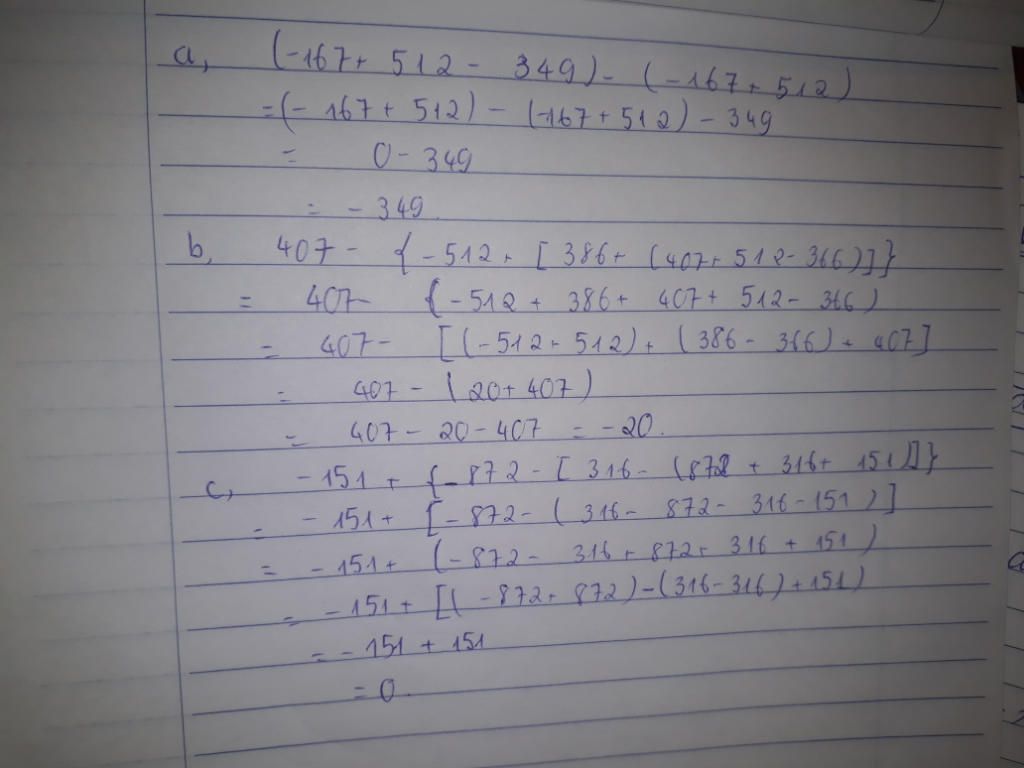 a, (-167+ 512 - 349) - (-167+512)
=(-167+512) - (-167+512) - 349
= 0 - 349
= - 349.
b, 407 - {-512+ [386+ (407+ 512-366)]}
= 407- {-512 + 386+ 407+ 512- 366)
= 407- [(-512+512)+ (386- 366)+ 407]
= 407- (20+407)
= 407- 20-407 = -20.
c, -151 + {-872-[316- (872 + 316+ 151)]}
= -151+ [-872-( 316- 872- 316-151)]
= -151+ (-872- 316+872+ 316 + 151)
= -151+[(-872+872)-(316-316)+151)
= -151 + 151
= 0.